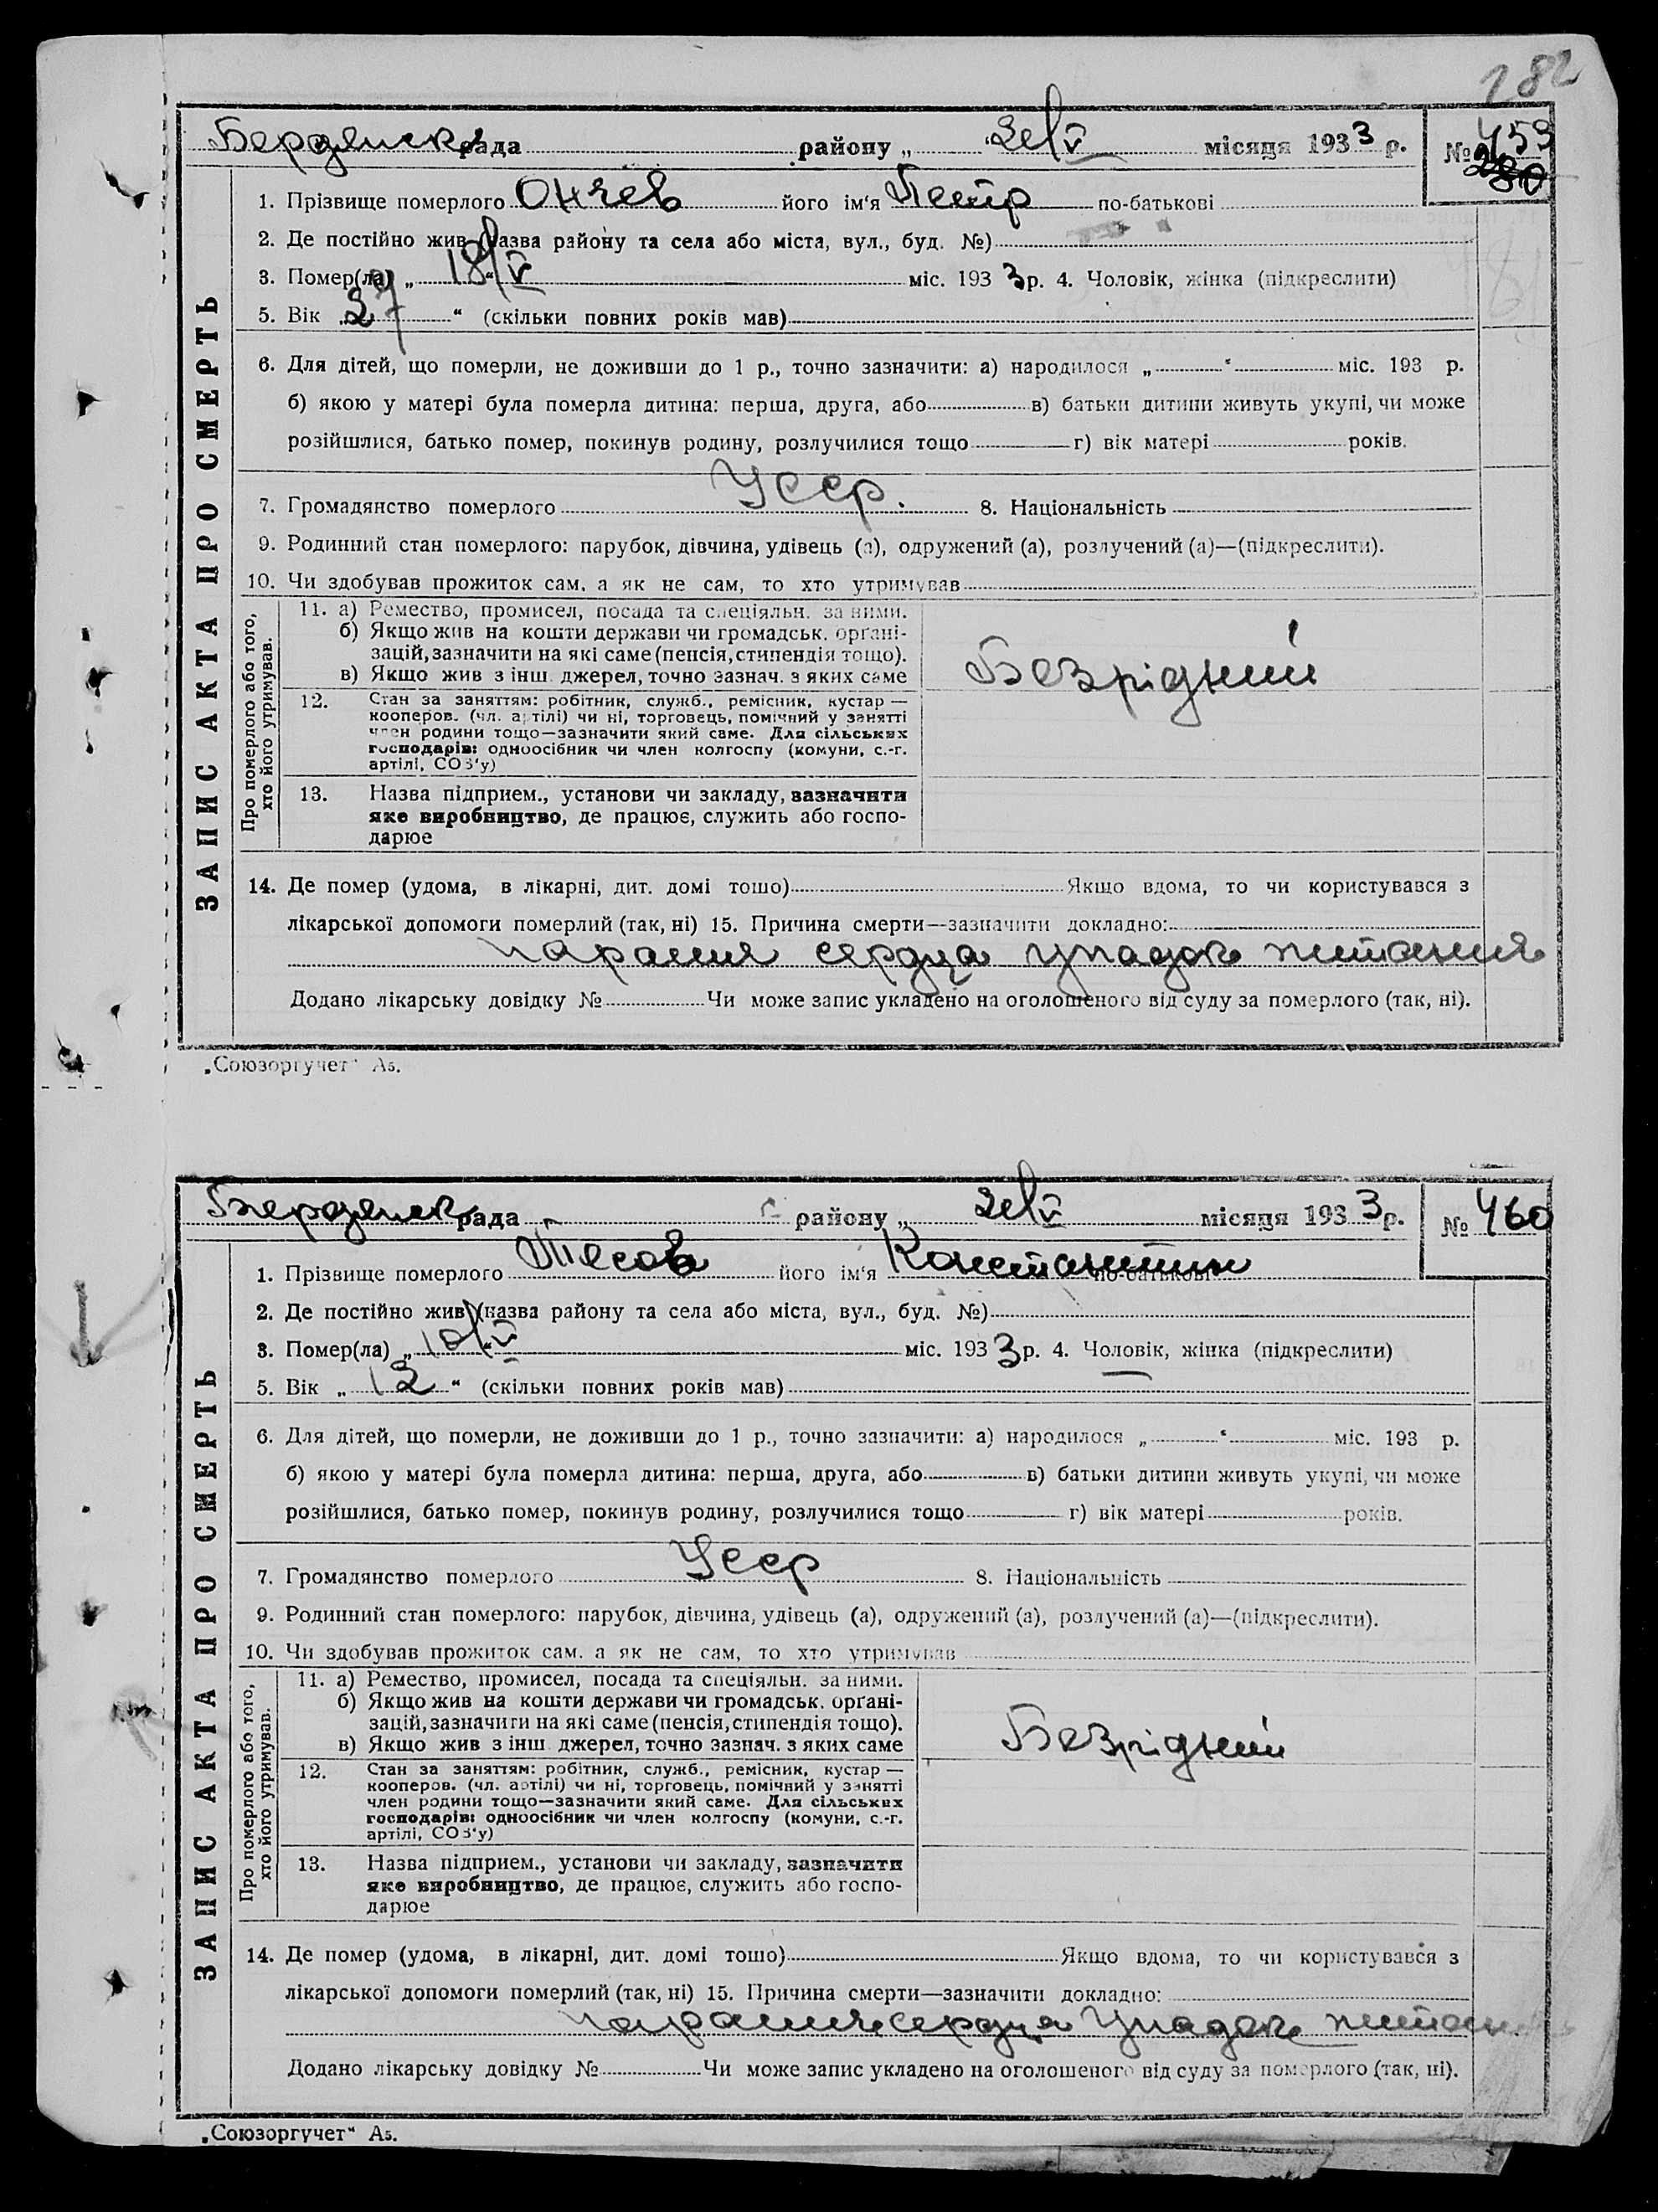 282
Бердянськ рада района „ 24/V місяця 1933 р. № 459
280
1. Прізвище померлого Ончев його ім'я Петр по-батькові
2. Де постійно жив (назва району та села або міста, вул., буд. №)
3. Помер(ла) „ 18/V “ міс. 1933 р. 4. Чоловік, жінка (підкреслити)
5. Вік 27 “ (скільки повних років мав)
6. Для дітей, що померли, не доживши до 1 р., точно зазначити: а) народилося „ “ міс. 193 р.
б) якою у матері була померла дитина: перша, друга, або в) батьки дитини живуть укупі, чи може
розійшлися, батько помер, покинув родину, розлучилися тощо г) вік матері років.
7. Громадянство померлого Усср. 8. Національність
9. Родинний стан померлого: парубок, дівчина, удівець (а), одружений (а), розлучений (а)—(підкреслити).
10. Чи здобував прожиток сам, а як не сам, то хто утримував
ЗАПИС АКТА ПРО СМЕРТЬ
Про померлого або того,
хто його утримував.
11. а) Ремество, промисел, посада та спеціяльн. за ними.
б) Якщо жив на кошти держави чи громадськ. орґані-
зацій, зазначити на які саме (пенсія, стипендія тощо).
в) Якщо жив з інш. джерел, точно зазнач. з яких саме
Безрідний
12. Стан за заняттям: робітник, служб., ремісник, кустар —
кооперов. (чл. артілі) чи ні, торговець, помічний у занятті
член родини тощо—зазначити який саме. Для сільських
господарів: одноосібник чи член колгоспу (комуни, с.-г.
артілі, СОЗ'у)
13. Назва підприєм., установи чи закладу, зазначити
яке виробництво, де працює, служить або госпо-
дарює
14. Де помер (удома, в лікарні, дит. домі тощо) Якщо вдома, то чи користувався з
лікарської допомоги померлий (так, ні) 15. Причина смерти—зазначити докладно:
сердца упадок питания
Додано лікарську довідку № Чи може запис укладено на оголошеного від суду за померлого (так, ні).
„Союзоргучет“ А5.
Бердянськ рада району „ 24/V місяця 1933 р. № 460
1. Прізвище померлого Тясов його ім'я Константин по-батькові
2. Де постійно жив (назва району та села або міста, вул., буд. №)
3. Помер(ла) „ 18/V “ міс. 1933 р. 4. Чоловік, жінка (підкреслити)
5. Вік „ 12 “ (скільки повних років мав)
6. Для дітей, що померли, не доживши до 1 р., точно зазначити: а) народилося „ “ міс. 193 р.
б) якою у матері була померла дитина: перша, друга, або в) батьки дитини живуть укупі, чи може
розійшлися, батько помер, покинув родину, розлучилися тощо г) вік матері років.
7. Громадянство померлого Усср 8. Національність
9. Родинний стан померлого: парубок, дівчина, удівець (а), одружений (а), розлучений (а)—(підкреслити).
10. Чи здобував прожиток сам, а як не сам, то хто утримував
ЗАПИС АКТА ПРО СМЕРТЬ
Про померлого або того,
хто його утримував.
11. а) Ремество, промисел, посада та спеціяльн. за ними.
б) Якщо жив на кошти держави чи громадськ. орґані-
зацій, зазначити на які саме (пенсія, стипендія тощо).
в) Якщо жив з інш. джерел, точно зазнач. з яких саме
Безрідний
12. Стан за заняттям: робітник, служб., ремісник, кустар —
кооперов. (чл. артілі) чи ні, торговець, помічний у занятті
член родини тощо—зазначити який саме. Для сільських
господарів: одноосібник чи член колгоспу (комуни, с.-г.
артілі, СОЗ'у)
13. Назва підприєм., установи чи закладу, зазначити
яке виробництво, де працює, служить або госпо-
дарює
14. Де помер (удома, в лікарні, дит. домі тощо) Якщо вдома, то чи користувався з
лікарської допомоги померлий (так, ні) 15. Причина смерти—зазначити докладно:
сердца Упадок питан
Додано лікарську довідку № Чи може запис укладено на оголошеного від суду за померлого (так, ні).
„Союзоргучет“ А5.